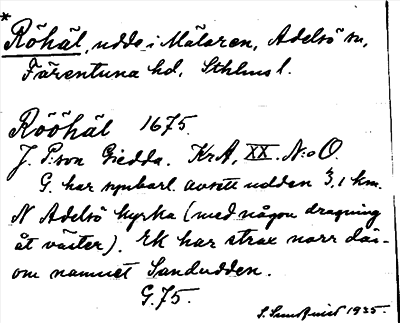 * Röhäl, udde i Mälaren, Adelsö sn,
Färentuna hd, Sthlms l.
Rööhäl 1675.
J. P:son Giedda. KrA, XX. N:o O.
G. har synbarl. avsett udden 3,1 km.
N Adelsö kyrka (med någon dragning
åt väster). Ek har strax norr där-
om namnet Sandudden.
G. 75.
S. Sundqvist 1935.